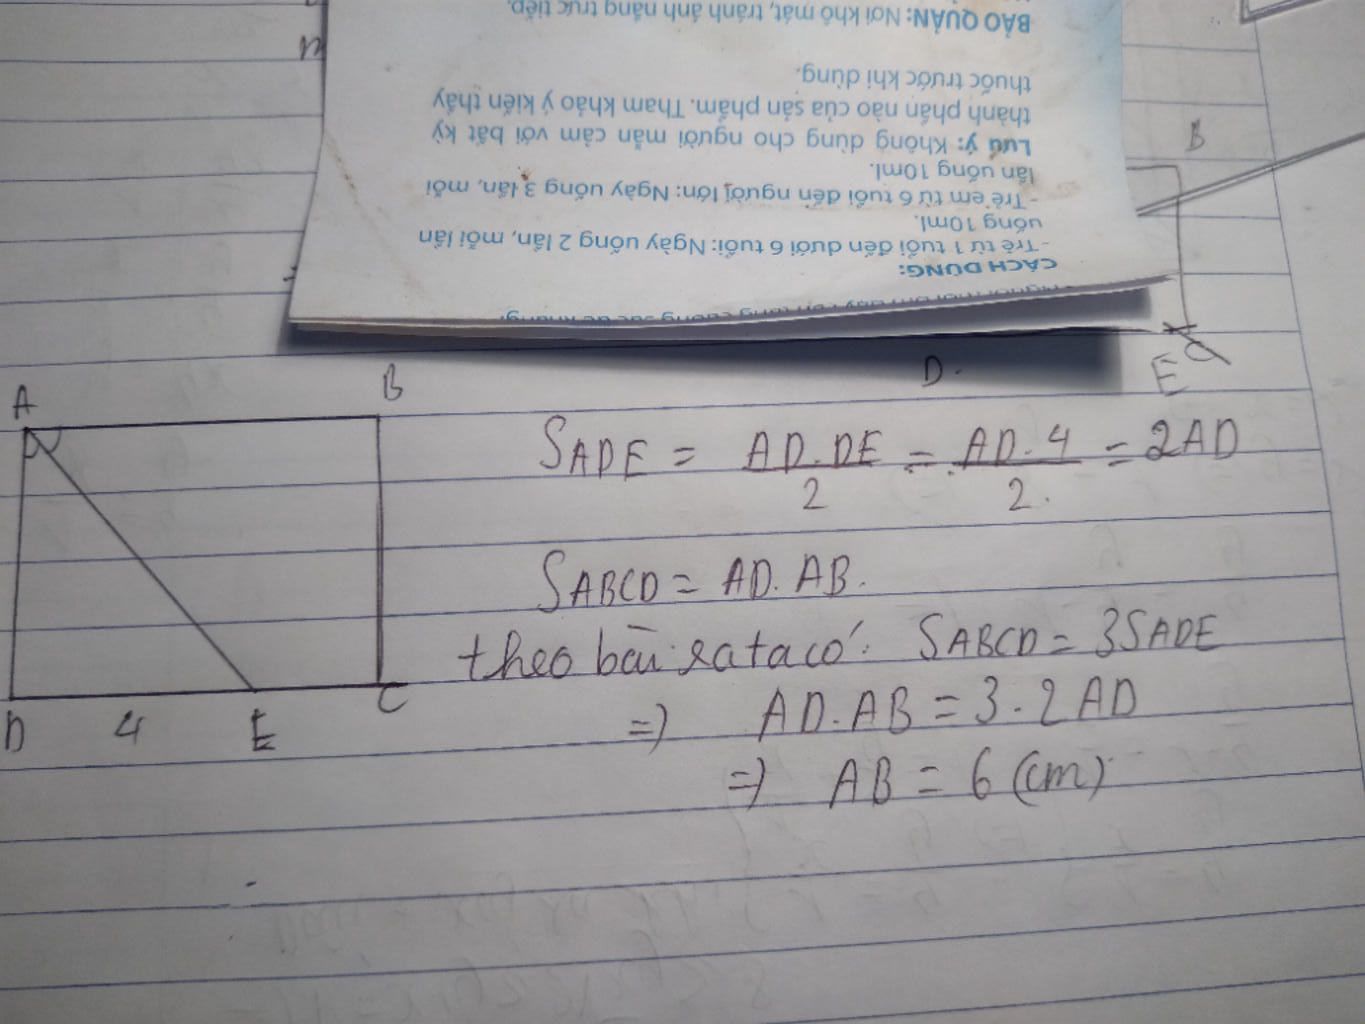 BẢO QUẢN: Nơi khô mát, tránh ánh nắng trực tiếp.
thuốc trước khi dùng.
thành phần nào của sản phẩm. Tham khảo ý kiến thầy
Lưu ý: Không dùng cho người mẫn cảm với bất kỳ
lần uống 10ml.
- Trẻ em từ 6 tuổi đến người lớn: Ngày uống 3 lần, mỗi
uống 10ml.
- Trẻ từ 1 tuổi đến dưới 6 tuổi: Ngày uống 2 lần, mỗi lần
CÁCH DÙNG:
B
D.
E
A
B
D
4
E
C
SADE = AD.DE/2 = AD.4/2. = 2AD
SABCD = AD.AB.
theo bài ra ta có: SABCD = 3SADE
=> AD.AB = 3.2AD
=> AB = 6 (cm)